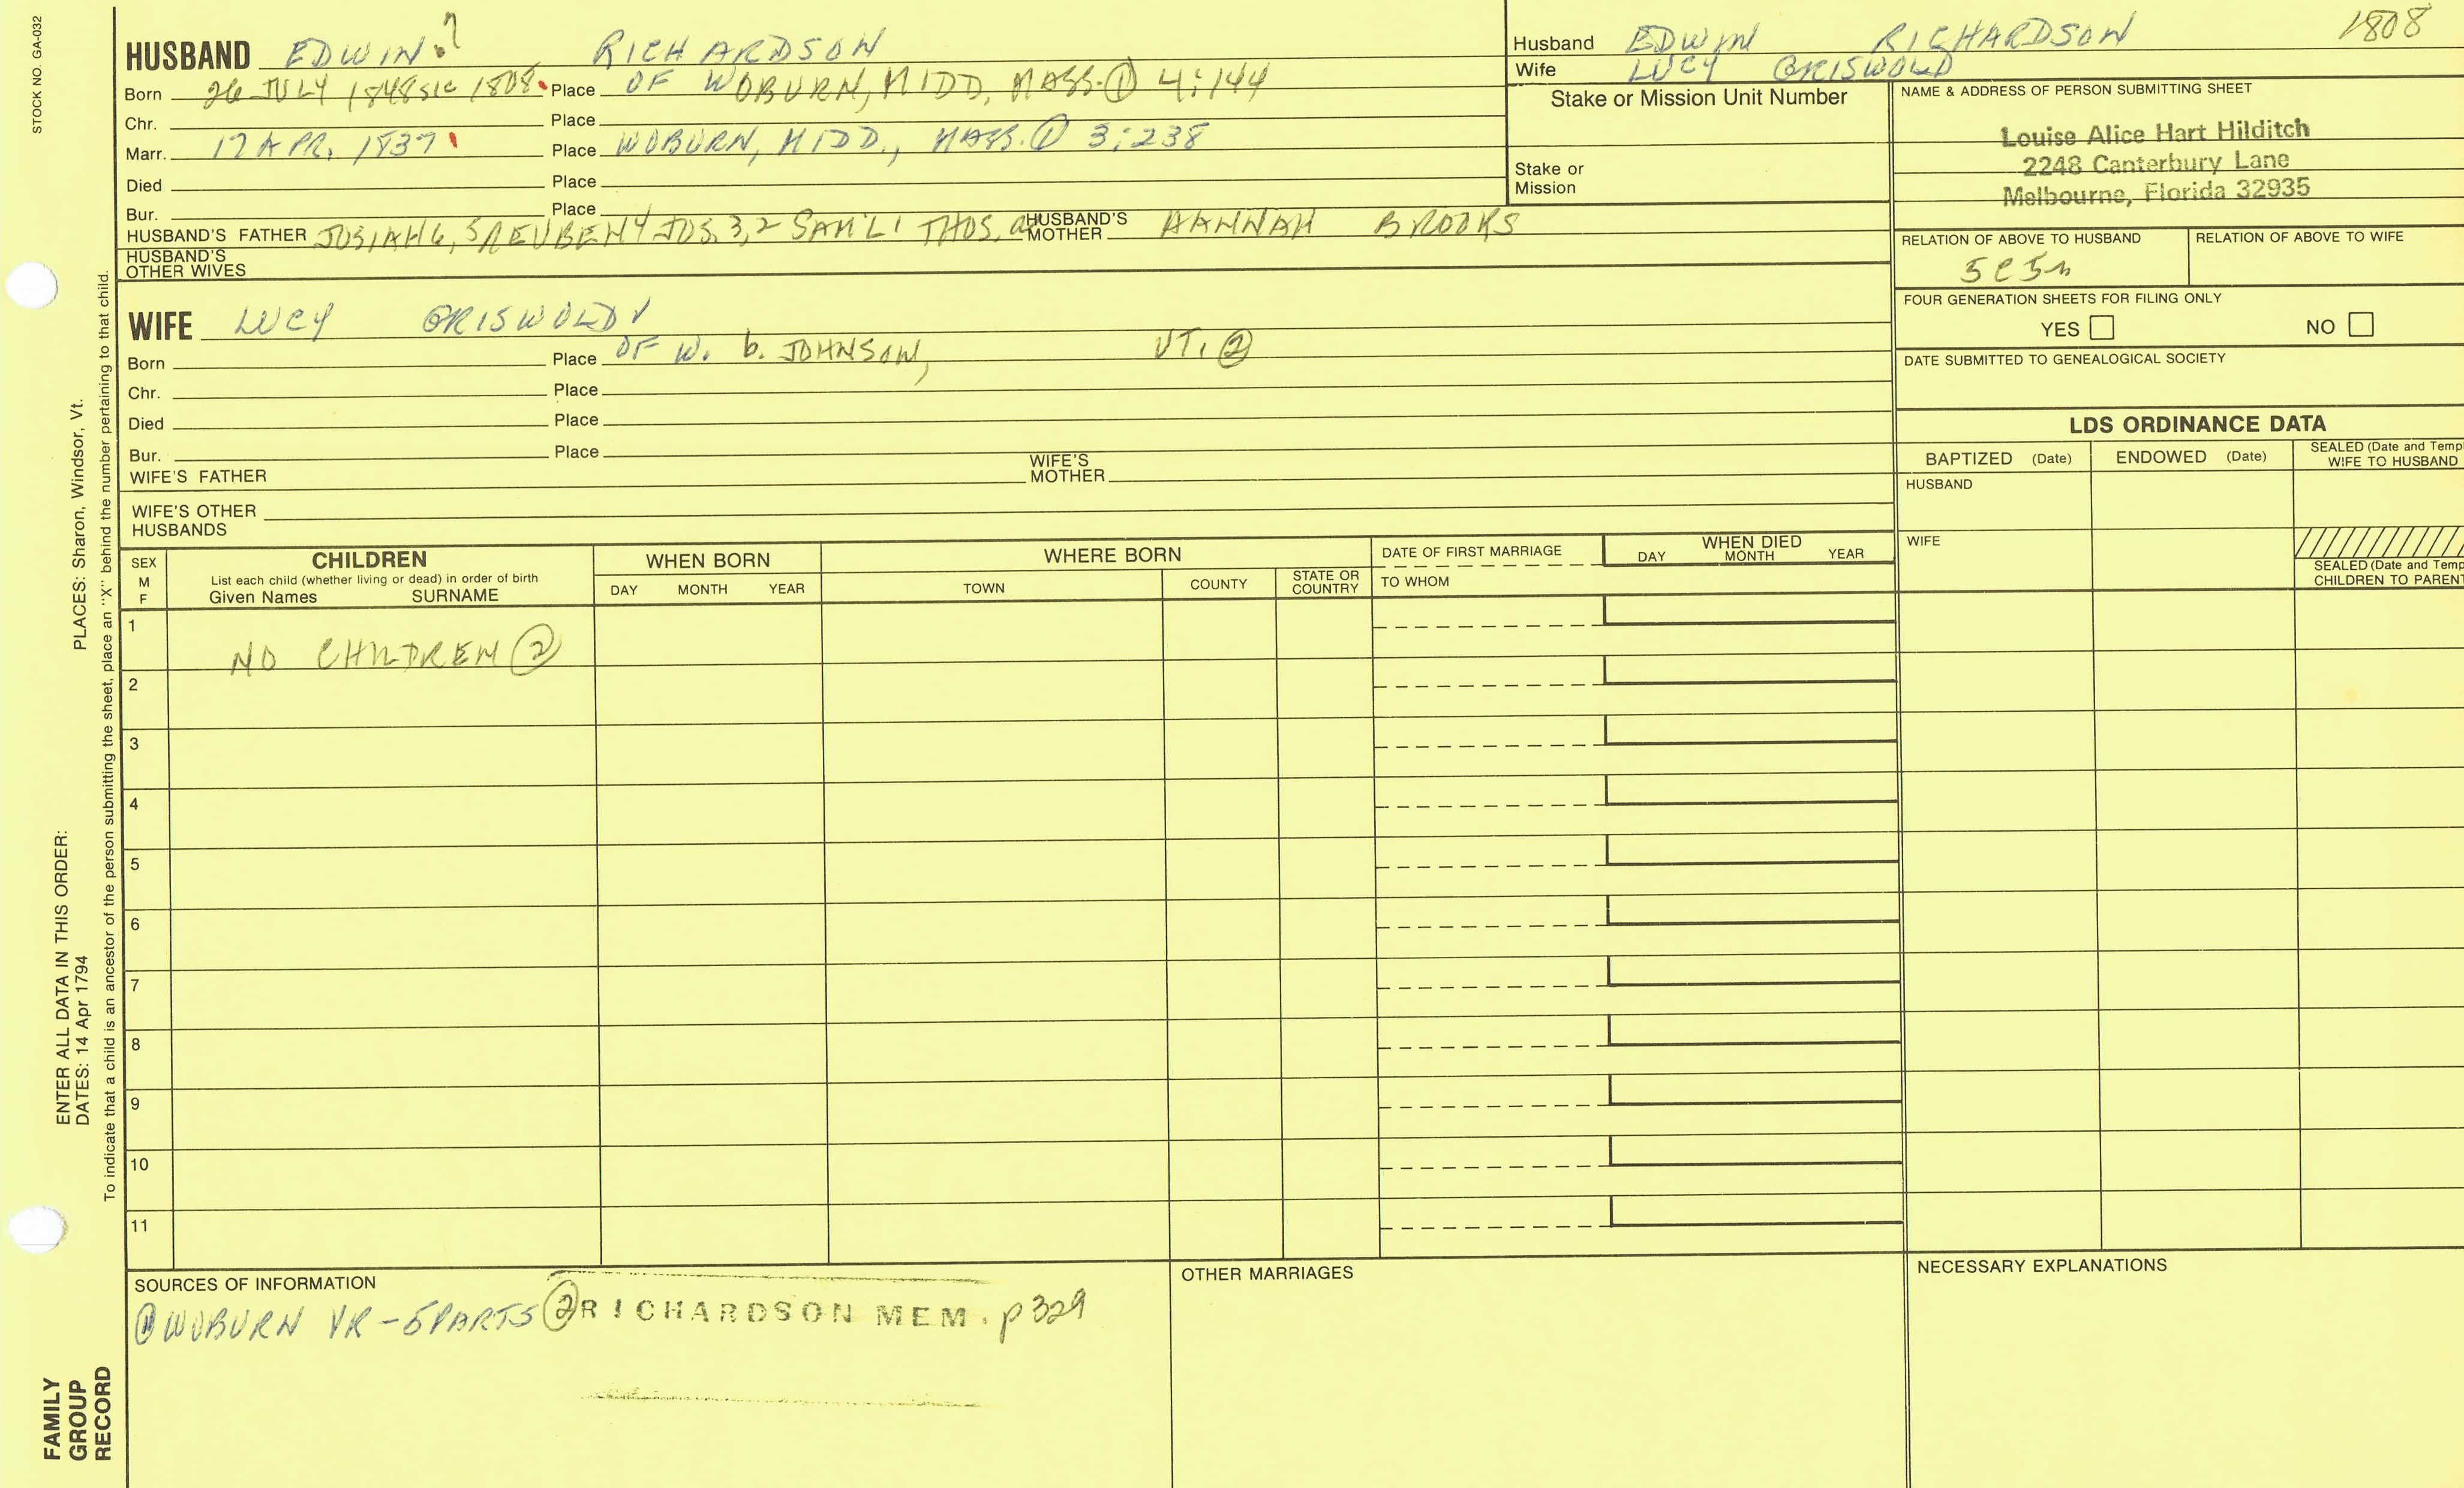 STOCK NO. GA-032
HUSBAND EDWIN ? RICHARDSON
Born 26 JULY 1848 SIC 1808 Place OF WOBURN, MIDD, MASS. ① 4:144
Chr. Place
Marr. 17 APR. 1837 Place WOBURN, MIDD., MASS. ① 3:238
Died Place
Bur. Place
HUSBAND'S FATHER JOSIAH 6, 5 REUBEN 4 JOS. 3, 2 SAM'L 1 THOS. HUSBAND'S MOTHER HANNAH BROOKS
HUSBAND'S OTHER WIVES
Husband EDWIN RICHARDSON 1808
Wife LUCY GRISWOLD
Stake or Mission Unit Number
Stake or Mission
NAME & ADDRESS OF PERSON SUBMITTING SHEET
Louise Alice Hart Hilditch
2248 Canterbury Lane
Melbourne, Florida 32935
RELATION OF ABOVE TO HUSBAND RELATION OF ABOVE TO WIFE
5C5R
FOUR GENERATION SHEETS FOR FILING ONLY
YES NO
DATE SUBMITTED TO GENEALOGICAL SOCIETY
WIFE LUCY GRISWOLD
Born Place OF W. b. JOHNSON, VT. ②
Chr. Place
Died Place
Bur. Place
WIFE'S FATHER WIFE'S MOTHER
WIFE'S OTHER HUSBANDS
LDS ORDINANCE DATA
BAPTIZED (Date) ENDOWED (Date) SEALED (Date and Temp
WIFE TO HUSBAND
HUSBAND
WIFE
SEALED (Date and Temp
CHILDREN TO PARENT
SEX
M
F
CHILDREN
List each child (whether living or dead) in order of birth
Given Names SURNAME
WHEN BORN
DAY MONTH YEAR
WHERE BORN
TOWN COUNTY STATE OR COUNTRY
DATE OF FIRST MARRIAGE
TO WHOM
WHEN DIED
DAY MONTH YEAR
1
NO CHILDREN ②
2
3
4
5
6
7
8
9
10
11
SOURCES OF INFORMATION
① WOBURN VR - 5 PARTS ② RICHARDSON MEM. p 329
OTHER MARRIAGES
NECESSARY EXPLANATIONS
FAMILY
GROUP
RECORD
ENTER ALL DATA IN THIS ORDER:
DATES: 14 Apr 1794 PLACES: Sharon, Windsor, Vt.
To indicate that a child is an ancestor of the person submitting the sheet, place an "X" behind the number pertaining to that child.